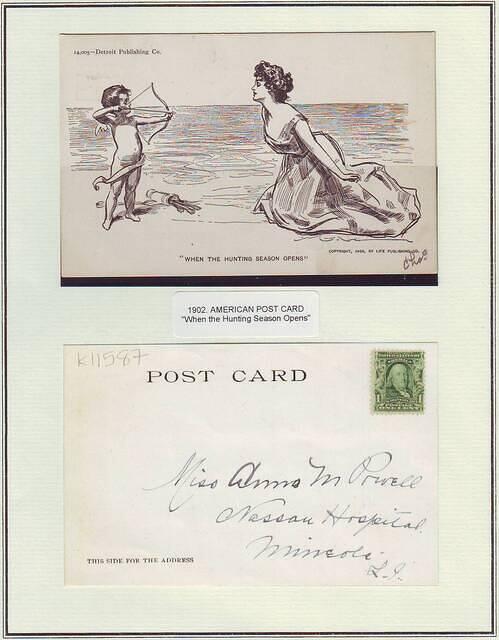 14,005—Detroit Publishing Co.
"WHEN THE HUNTING SEASON OPENS"
COPYRIGHT, 1900, BY LIFE PUBLISHING CO.
1902. AMERICAN POST CARD
"When the Hunting Season Opens"
K11587
POST CARD
1
ONE CENT
Miss Anna M Powell
Nassau Hospital
Mineola
L.I.
THIS SIDE FOR THE ADDRESS